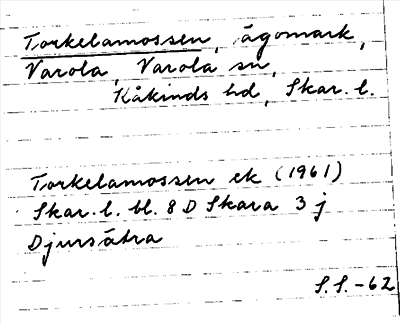 Torkelamossen, ägomark,
Varola, Varola sn,
Kåkinds hd, Skar. l.
Torkelamossen ek (1961)
Skar. l. bl. 8 D Skara 3 j
Djursätra
S.S. -62